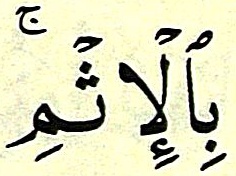 بِٱلْإِثْمِۚ